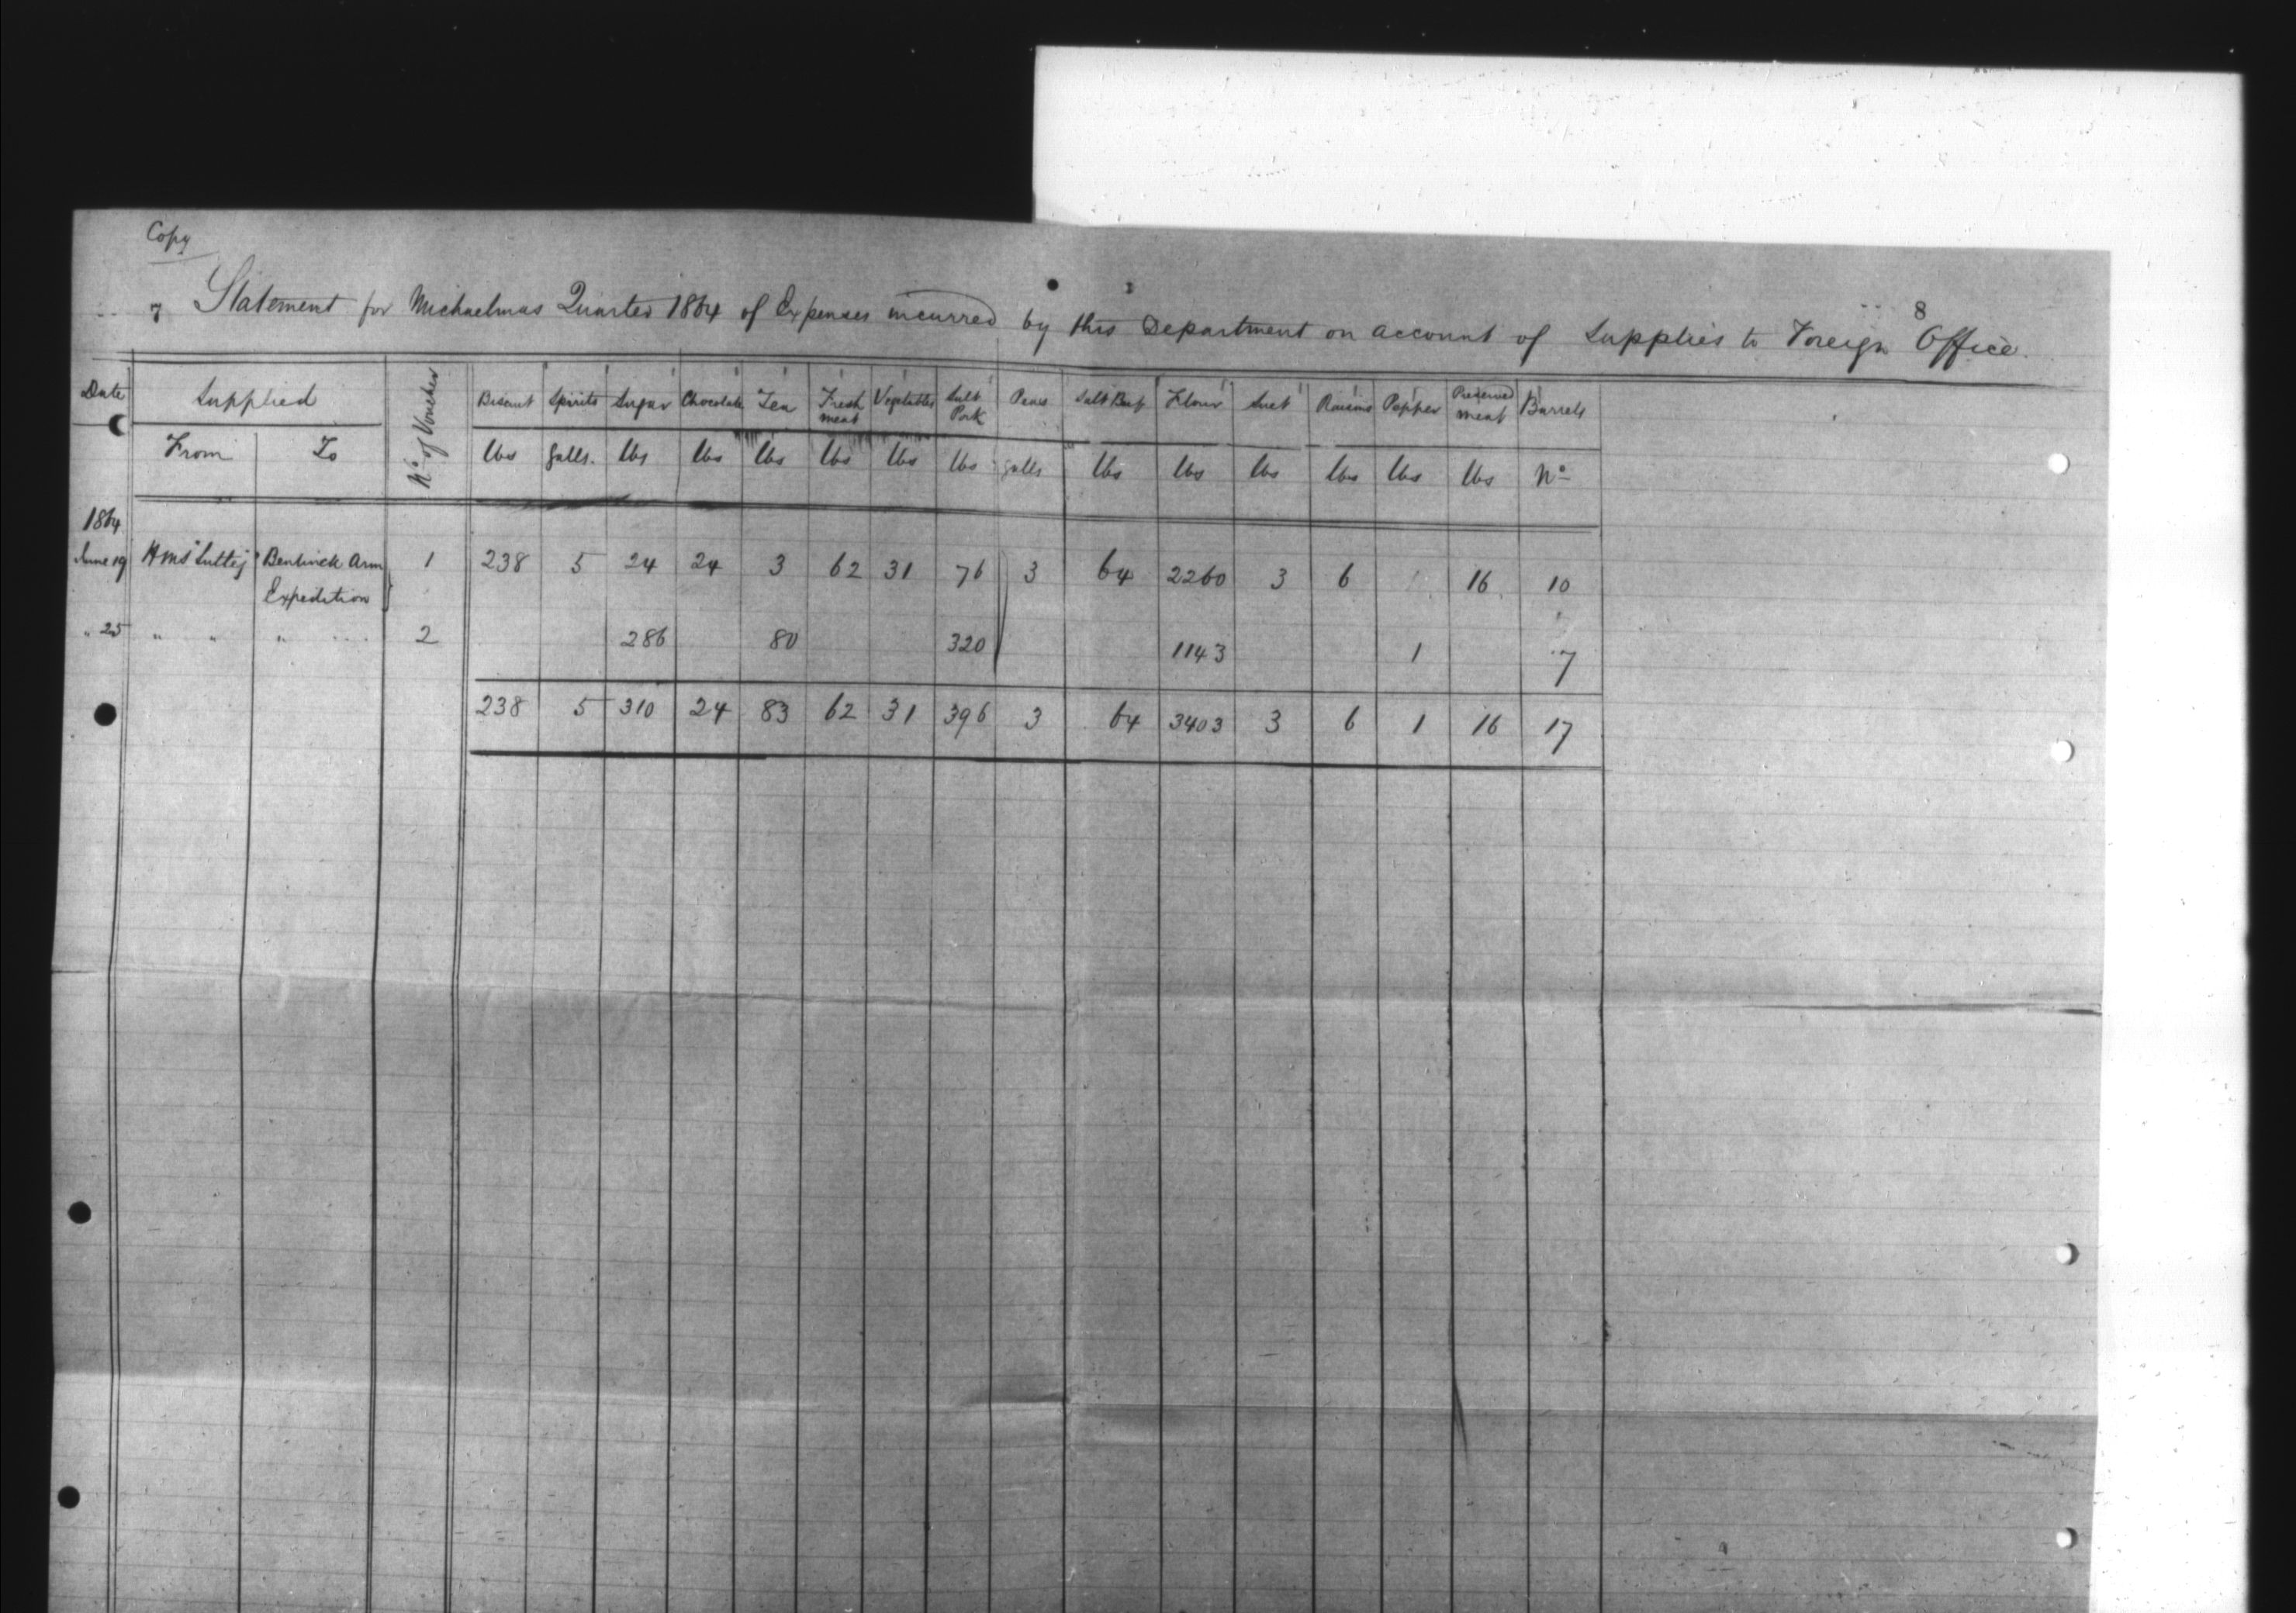 Copy
7 8
Statement for Michaelmas Quarter 1864 of Expenses incurred by this Department on account of Supplies to Foreign Office.
Date Supplied No of Voucher Biscuit Spirits Sugar Chocolate Tea Fresh meat Vegetables Salt Pork Peas Salt Beef Flour Suet Raisins Pepper Preserved meat Barrels
From To lbs galls. lbs lbs lbs lbs lbs lbs galls lbs lbs lbs lbs lbs lbs No
1864
June 19 HMS "Sutlej" Bentinck Arm 1 238 5 24 24 3 62 31 76 3 64 2260 3 6 16 10
Expedition
" 25 " " " 2 286 80 320 1143 1 7
238 5 310 24 83 62 31 396 3 64 3403 3 6 1 16 17